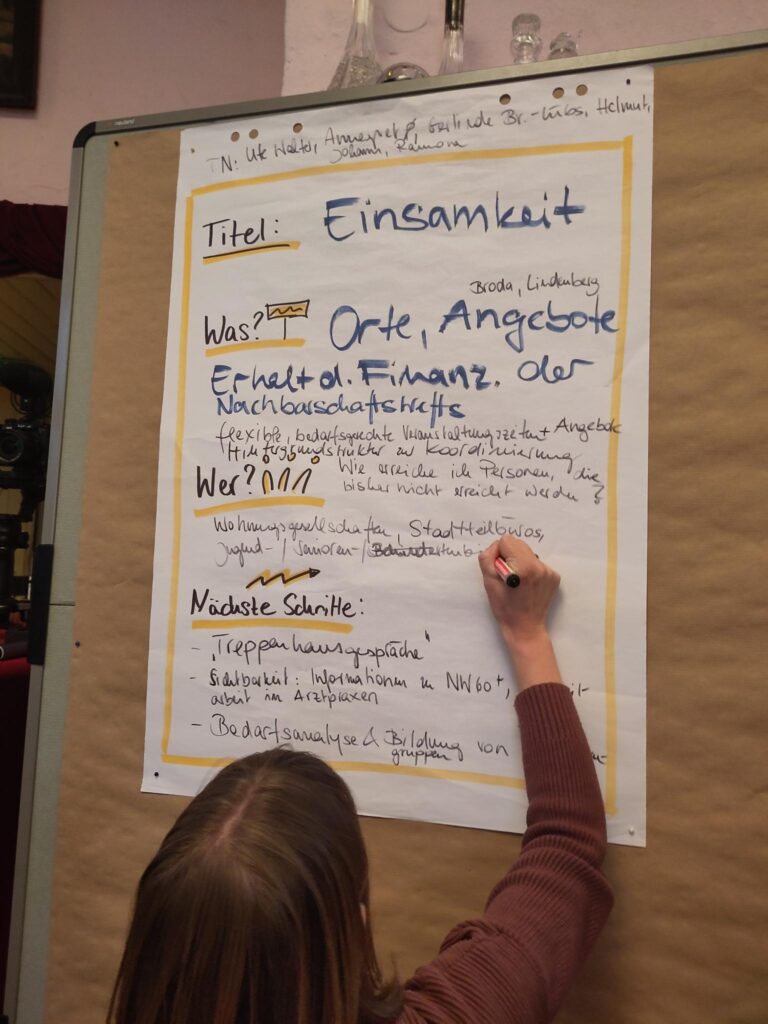 TN: Ute Walter, Annegret, Gerlinde Br.-Lübs, Helmut,
Johann, Ramona
Titel: Einsamkeit
Broda, Lindenberg
Was? Orte, Angebote
Erhalt d. Finanz. der
Nachbarschaftstreffs
flexible, bedarfsgerechte Veranstaltungszeiten + Angebote
Hintergrundstruktur zur Koordinierung
Wer? Wie erreiche ich Personen, die
bisher nicht erreicht werden?
Wohnungsgesellschaften, Stadtteilbüros,
Jugend-/Senioren-/
Nächste Schritte:
- „Treppenhausgespräche"
- Sichtbarkeit: Informationen in NW60+,
arbeit in Arztpraxen
- Bedarfsanalyse & Bildung von
gruppen